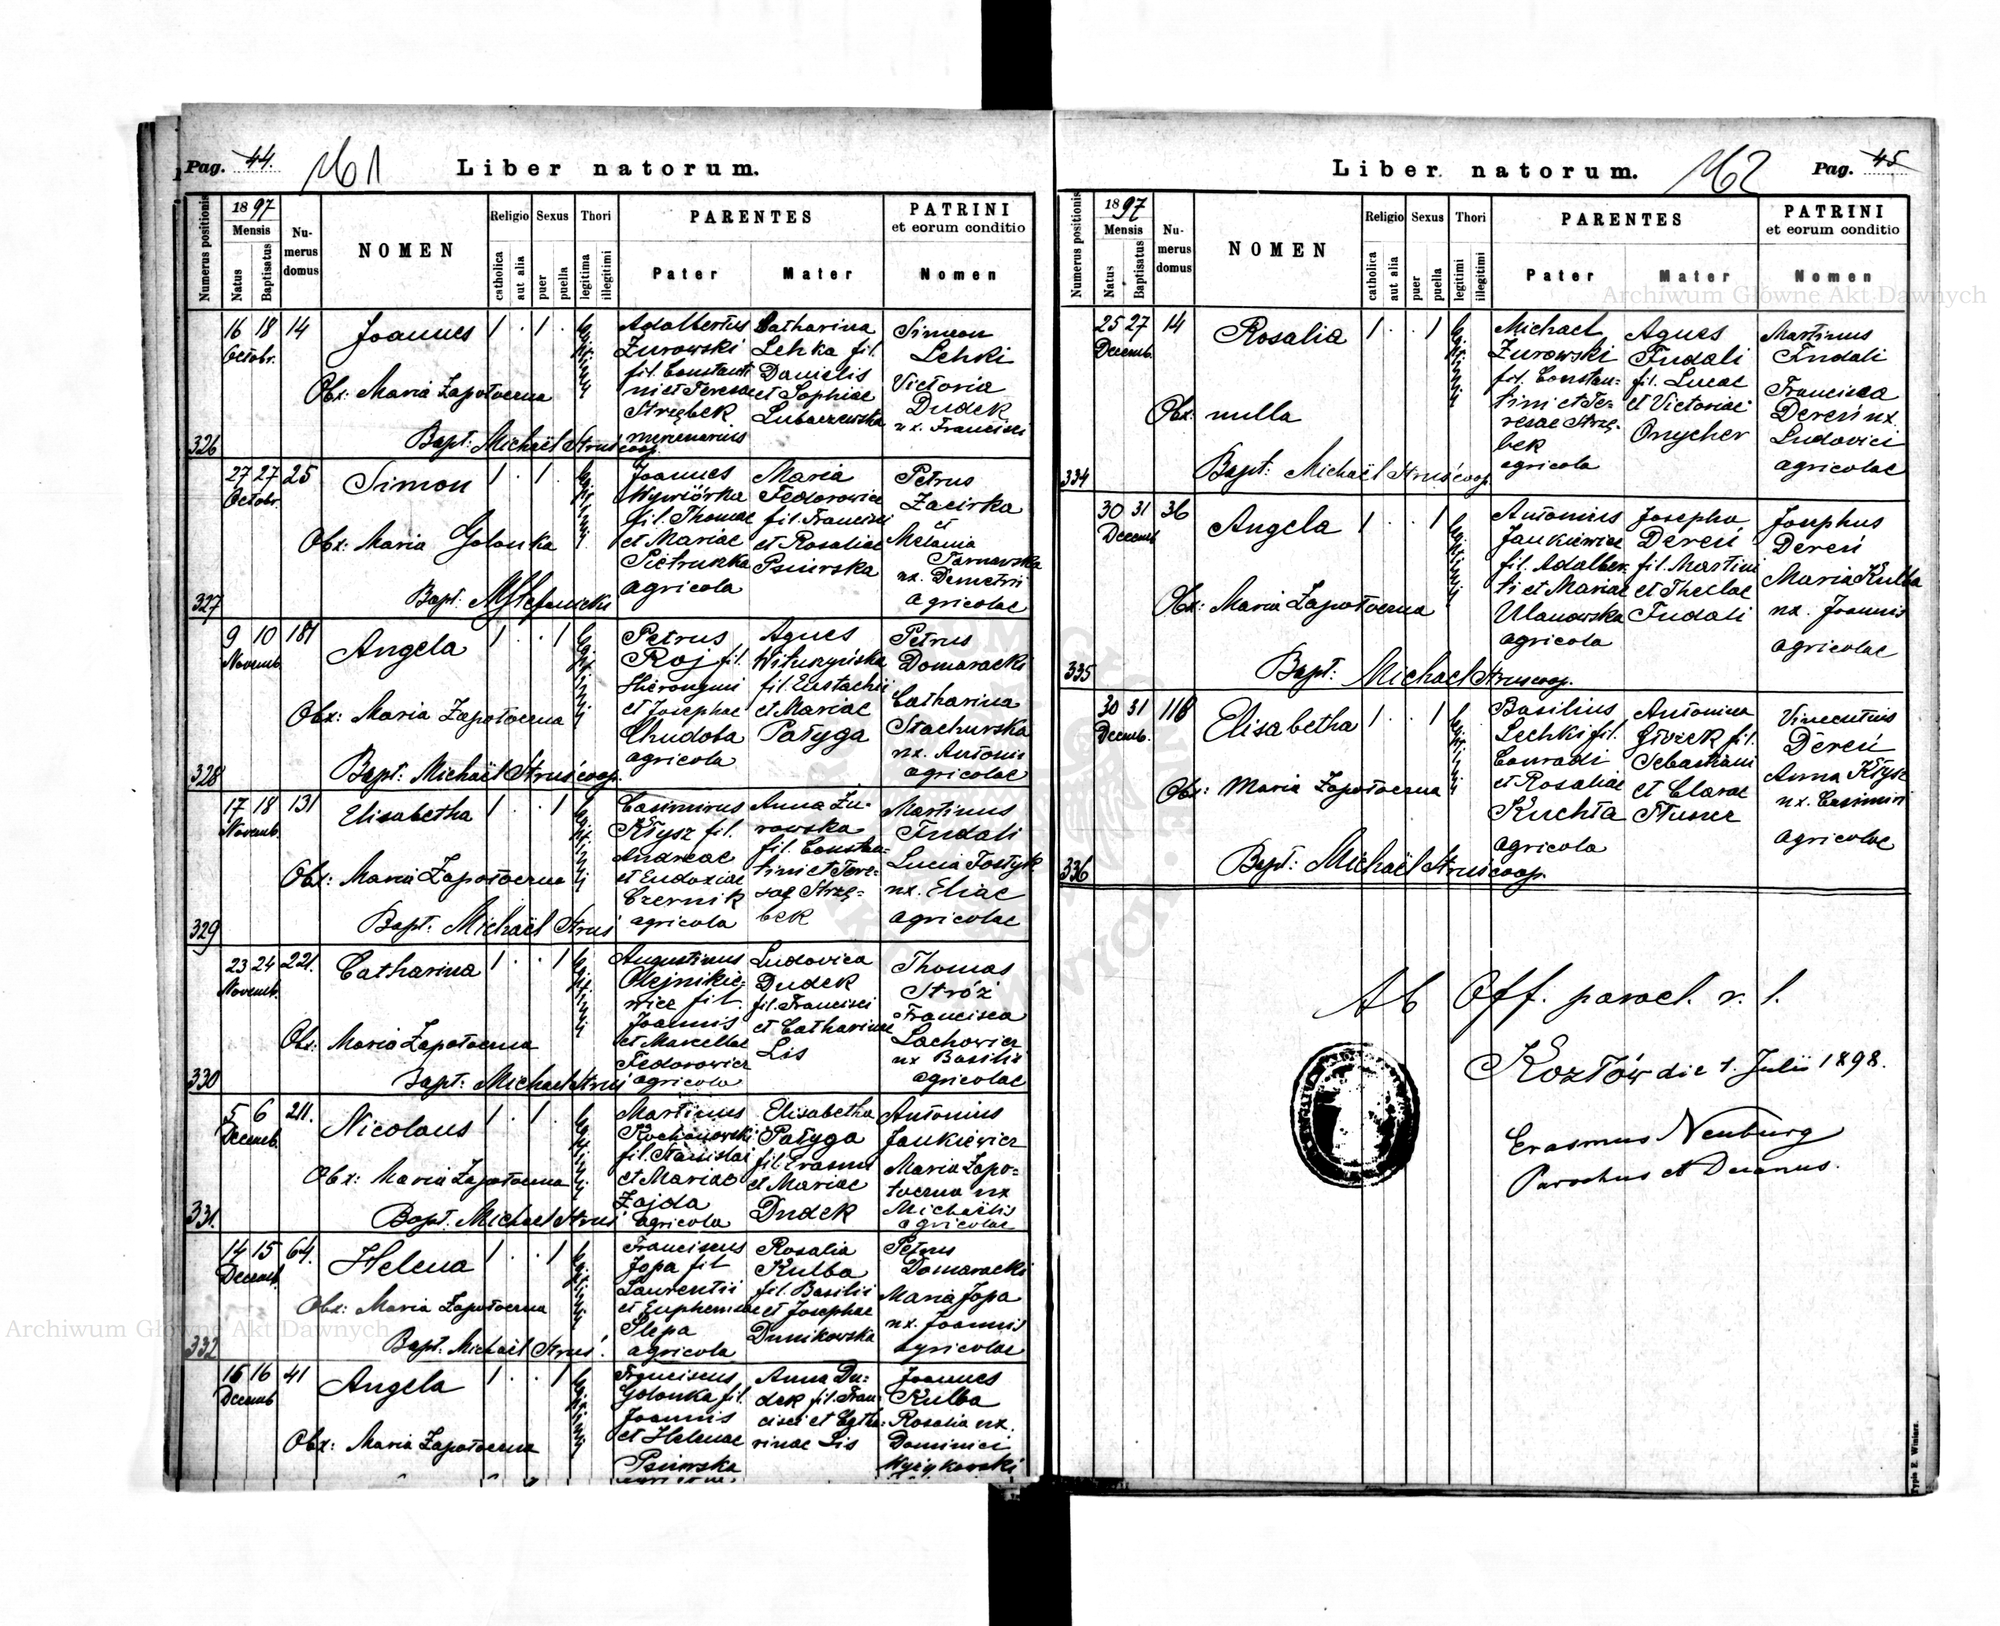 Pag. 44.
161
Liber natorum.
Numerus positionis
1897
Mensis
Natus
Baptisatus
Nu-
merus
domus
NOMEN
Religio
catholica
aut alia
Sexus
puer
puella
Thori
legitima
illegitimi
PARENTES
Pater
Mater
PATRINI
et eorum conditio
Nomen
326
16 18
Octobr.
14
Joannes
1 . 1 .
Obx: Maria Zapotoczna
Bapt: Michaël Struś coop.
Adalbertus
Żurowski
fil. Constant
ni et Teresae
Strzębek
mercenarius
Catharina
Lehka fil.
Danielis
et Sophiae
Lubaczewska
Simeon
Lehki
Victoria
Dudek
ux. Francisci
327
27 27
Octobr.
25
Simon
1 . 1 .
Obx: Maria Golonka
Bapt: MStefanicki
Joannes
Wywiórka
fil. Thomae
et Mariae
Pietruszka
agricola
Maria
Fedorowicz
fil. Francisci
et Rosaliae
Psiurska
Petrus
Zacirka
et
Melania
Tarnawska
ux. Demetrii
agricolae
328
9 10
Novemb.
181
Angela
1 . . 1
Obx: Maria Zapotoczna
Bapt: Michaël Struś coop.
Petrus
Roj fil.
Hieronymi
et Josephae
Chudoba
agricola
Agnes
Wituszyńska
fil. Eustachii
et Mariae
Pałyga
Petrus
Domaracki
Catharina
Stachurska
ux. Antonii
agricolae
329
17 18
Novemb.
131
Elisabetha
1 . . 1
Obx: Maria Zapotoczna
Bapt: Michaël Struś
Casimirus
Kłysz fil.
Andreae
et Eudoxiae
Czernik
agricola
Anna Żu-
rowska
fil. Constan-
tini et Tere-
sae Strzę-
bek
Martinus
Fudali
Lucia Tostyk
ux. Eliae
agricolae
330
23 24
Novemb.
221.
Catharina
1 . . 1
Obx: Maria Zapotoczna
Bapt: Michael Struś
Augustinus
Olejnikie-
wicz fil.
Joannis
et Marcellae
Fedorowicz
agricola
Ludovica
Dudek
fil. Francisci
et Catharinae
Lis
Thomas
Stróż
Francisca
Lachowicz
ux Basilii
agricolae
331.
5 6
Decemb.
211.
Nicolaus
1 . 1
Obx: Maria Zapotoczna
Bapt: Michael Struś
Martinus
Kochanowski
fil. Stanislai
et Mariae
Zajda
agricola
Elisabetha
Pałyga
fil. Erasmi
et Mariae
Dudek
Antonius
Jankiewicz
Maria Zapo-
toczna ux
Michaëlis
agricolae
332
14 15
Decemb.
64.
Helena
1 . . 1
Obx: Maria Zapotoczna
Bapt: Michaël Struś.
Franciscus
Jopa fil
Laurentii
et Euphemiae
Slepa
agricola
Rosalia
Kulba
fil. Basilii
et Josephae
Dunikowska
Petrus
Domaracki
Maria Jopa
ux. Joannis
agricolae
15 16
Decemb
41
Angela
1 . . 1
Obx: Maria Zapotoczna
Franciscus
Golonka fil.
Joannis
et Helenae
Psiurska
Anna Du-
dek fil. Fran-
cisci et Catha-
rinae Lis
Joannes
Kulba
Rosalia ux.
Dominici
Wyżykowski
Liber natorum.
162
Pag. 45
Numerus positionis
1897
Mensis
Natus
Baptisatus
Nu-
merus
domus
NOMEN
Religio
catholica
aut alia
Sexus
puer
puella
Thori
legitimi
illegitimi
PARENTES
Pater
Mater
PATRINI
et eorum conditio
Nomen
334
25 27
Decemb.
14
Rosalia
1 . . 1
Obx: nulla
Bapt: Michaël Struś coop.
Michael
Żurowski
fil. Constan-
tini et Te-
resae Strzę-
bek
agricola
Agnes
Fudali
fil. Lucae
et Victoriae
Onycher
Martinus
Fudali
Francisca
Dereń ux.
Ludovici
agricolae
335
30 31
Decemb
36
Angela
1 . . 1
Obx: Maria Zapotoczna
Bapt: Michael Struś coop.
Antonius
Jankiewicz
fil. Adalber-
ti et Mariae
Ulanowska
agricola
Josepha
Dereń
fil. Martini
et Theclae
Fudali
Josephus
Dereń
Maria Kulba
ux. Joannis
agricolae
336
30 31
Decemb.
118
Elisabetha
1 . . 1
Obx: Maria Zapotoczna
Bapt: Michaël Struś coop.
Basilius
Lechki fil.
Conradi
et Rosaliae
Kuchta
agricola
Antonina
Giczek fil.
Sebastiani
et Clarae
Vincentius
Dereń
Anna Kłysz
ux. Casimiri
agricolae
Ab Off. paroch. r. l.
Kozłów die 1. Julii 1898.
Erasmus Neuburg
Parochus et Decanus.
Typis E. Winiarz.
Archiwum Główne Akt Dawnych
Archiwum Główne Akt Dawnych